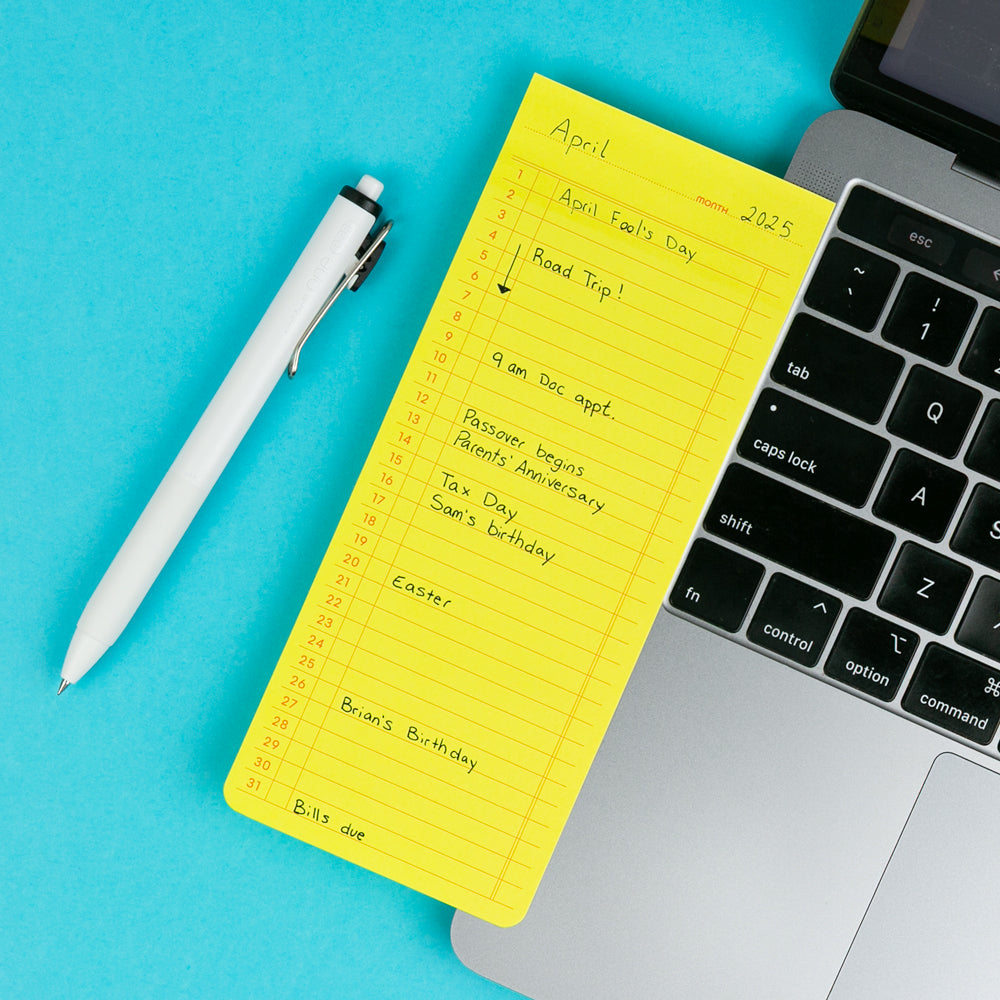 April
MONTH 2025
1 April Fool's Day
2
3
4 Road Trip!
5
6
7
8
9
10 9 am Doc appt.
11
12 Passover begins
13 Parents' Anniversary
14
15 Tax Day
16 Sam's birthday
17
18
19
20 Easter
21
22
23
24
25
26 Brian's Birthday
27
28
29
30
31 Bills due
esc
~
`
!
1
tab
Q
caps lock
A
S
shift
Z
fn
control
option
command